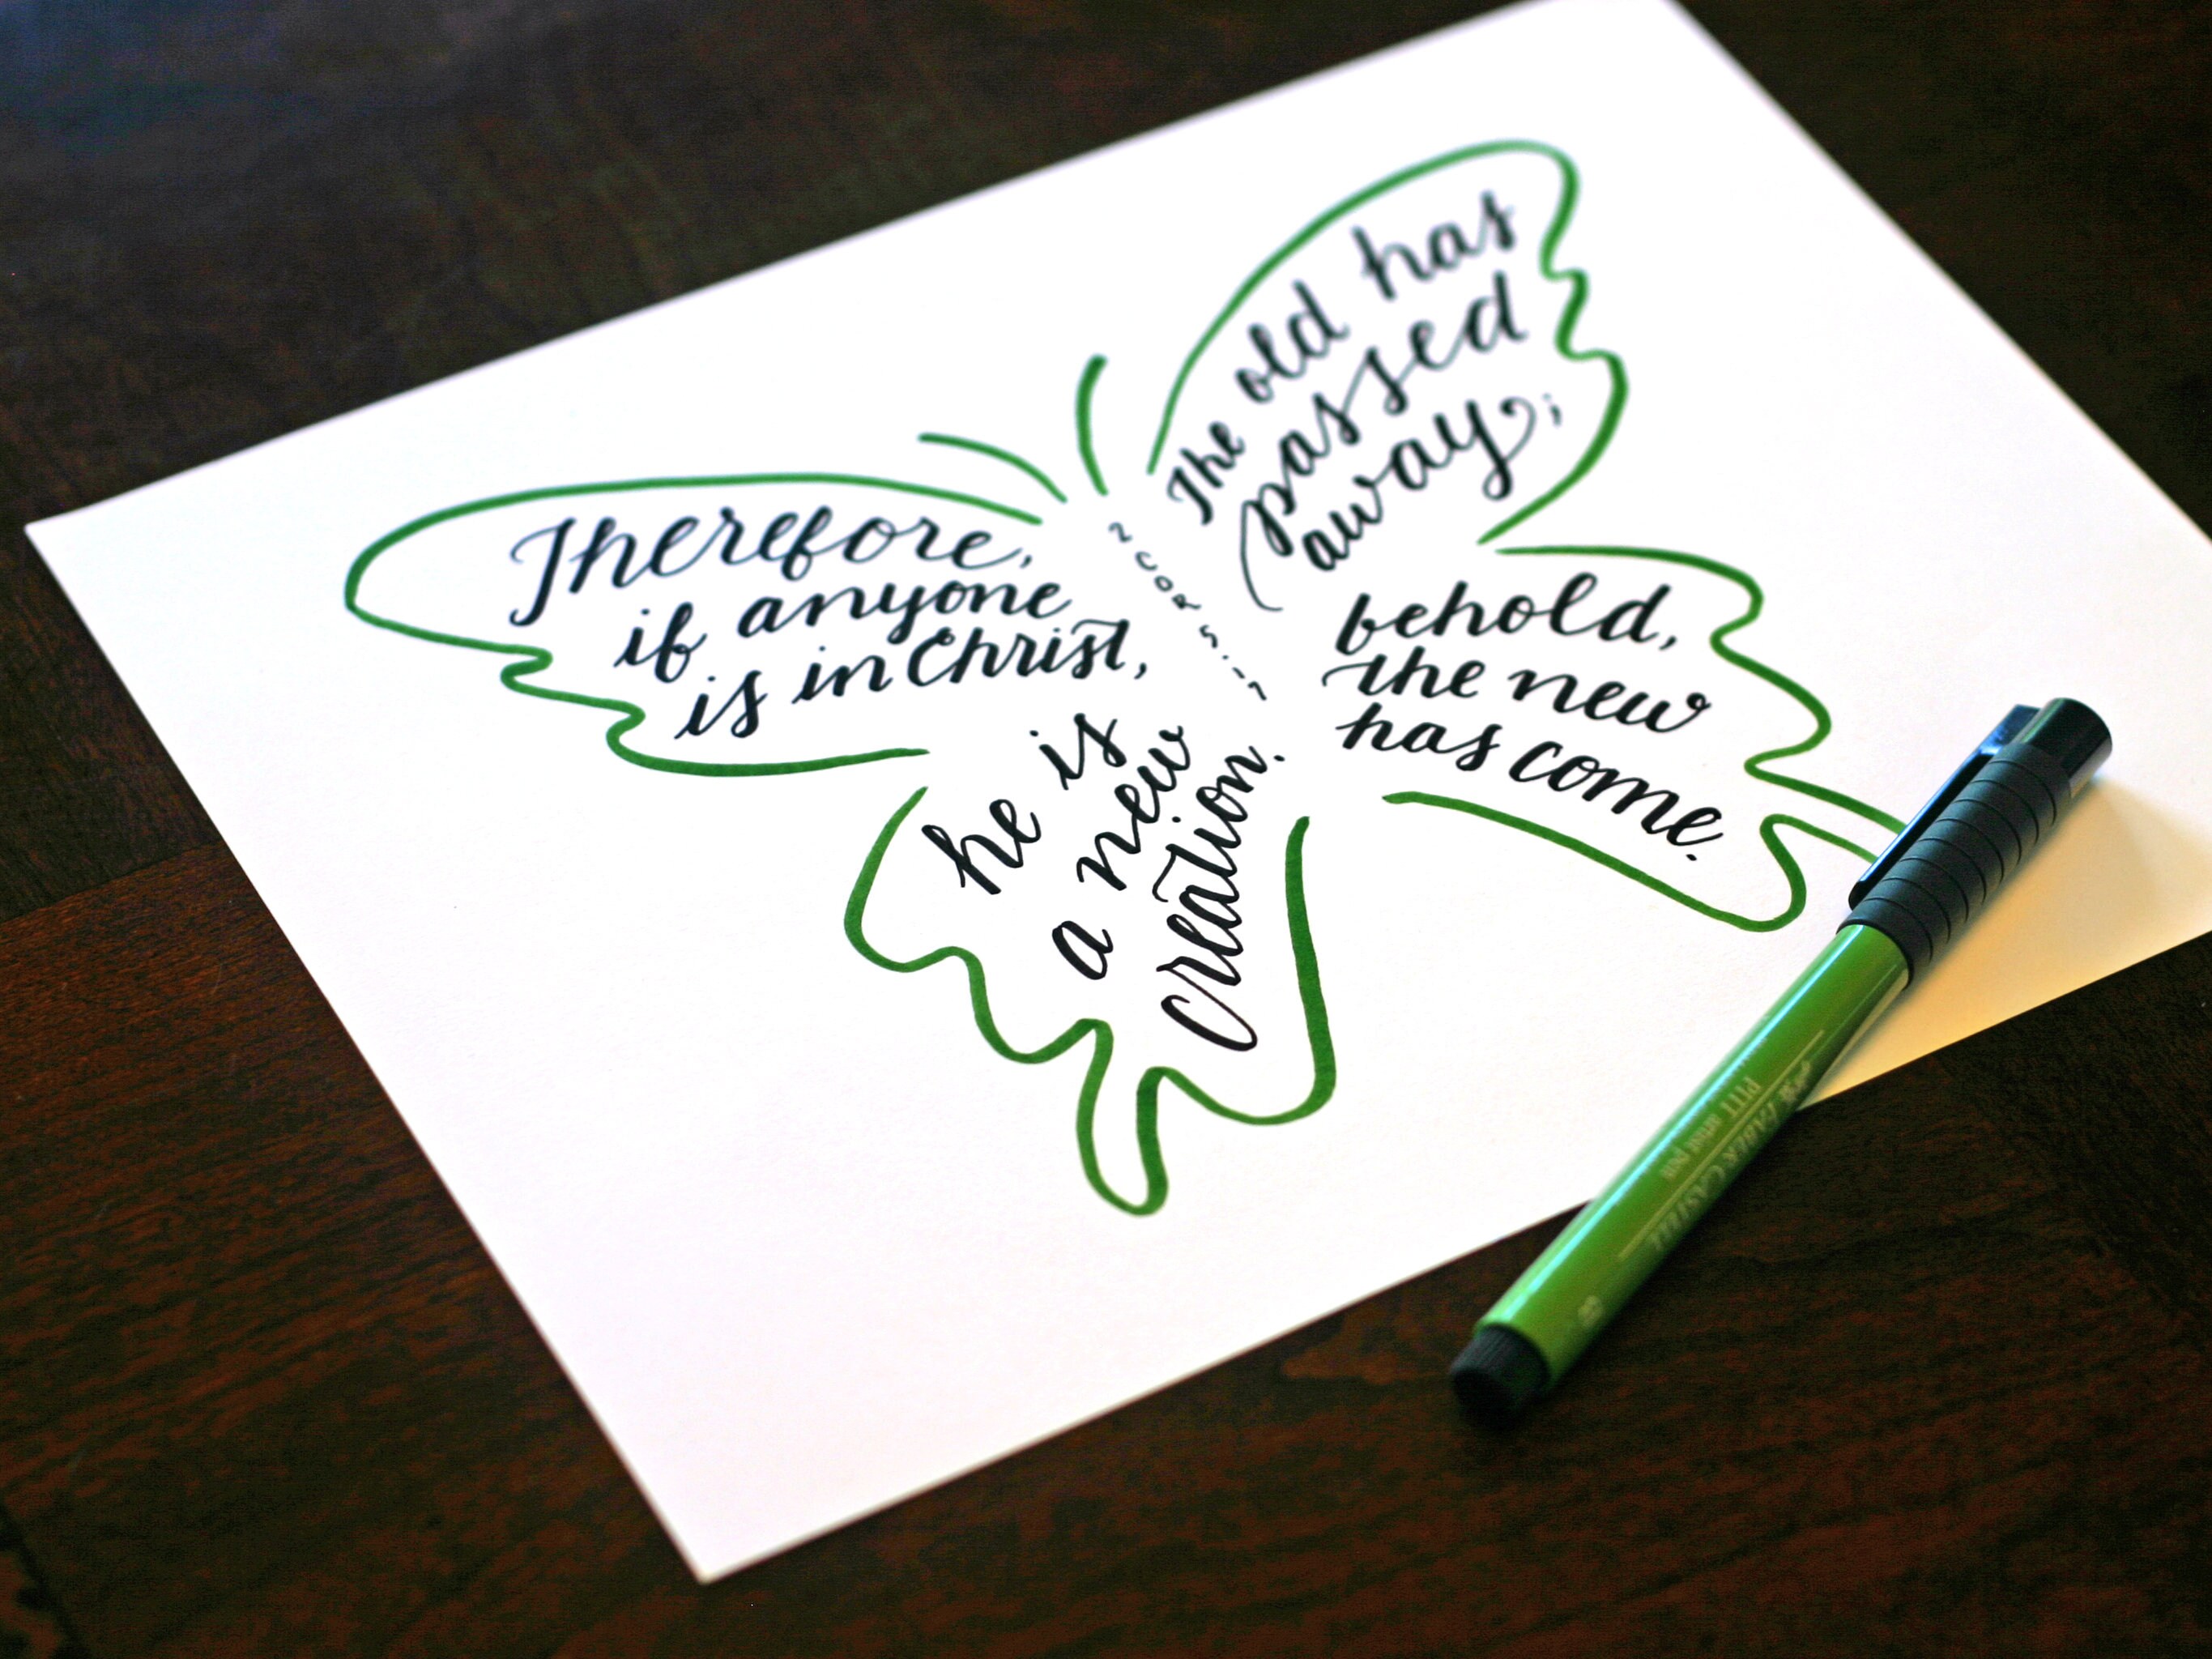 Therefore,
if anyone
is in Christ,
he is
a new
creation.
The old has
passed
away;
behold,
the new
has come.
2 COR 5:17
FABER-CASTELL
PITT artist pen
B